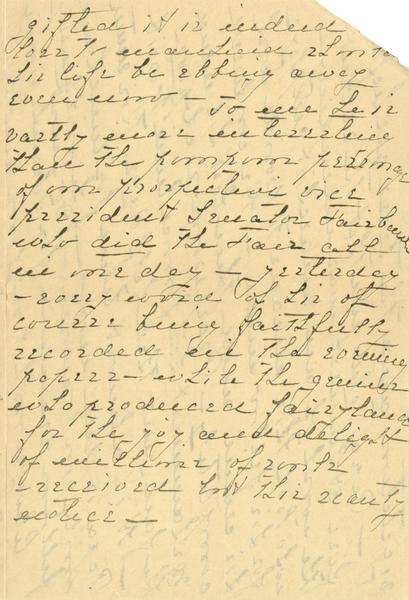 gifted it is indeed
loss to mankind should
his life be ebbing away
even now — To me he is
vastly more interesting
than the pompous personage
of our prospective vice
president Senator Fairbanks
who did the Fair all
in one day — yesterday
— every word of his of
course being faithfully
recorded in the evening
papers — while the genius
who produced fairyland
for the joy and delight
of millions of souls
— received but this scanty
notice —